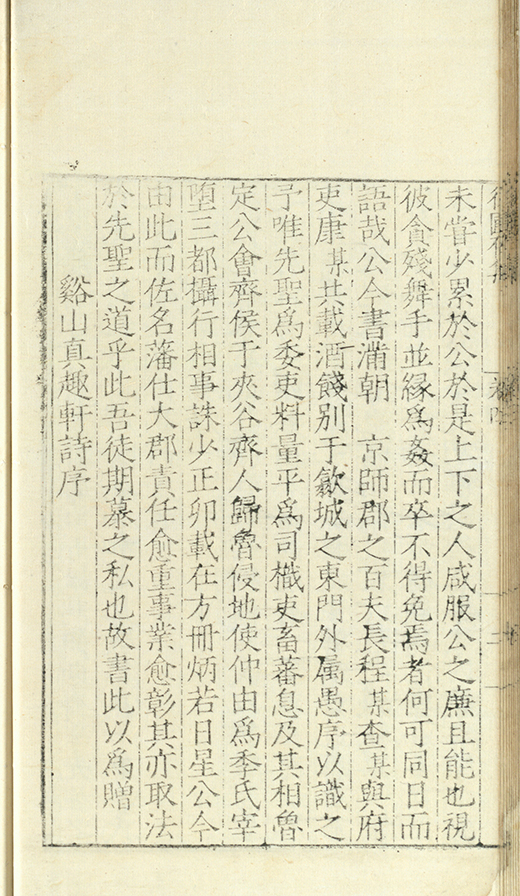 未嘗少累於公於是上下之人咸服公之廉且能也視
彼貪殘舞手並緣爲姦而卒不得免焉者何可同日而
語哉公今書滿朝　京師郡之百夫長程某查某與府
吏康某共載酒餞別于歙城之東門外属愚序以識之
予唯先聖爲委吏料量平爲司樴吏畜蕃息及其相魯
定公會齊侯于夾谷齊人歸魯侵地使仲由爲季氏宰
墮三都攝行相事誅少正卯載在方冊炳若日星公今
由此而佐名藩仕大郡責任愈重事業愈彰其亦取法
於先聖之道乎此吾徒期慕之私也故書此以爲贈
谿山真趣軒詩序